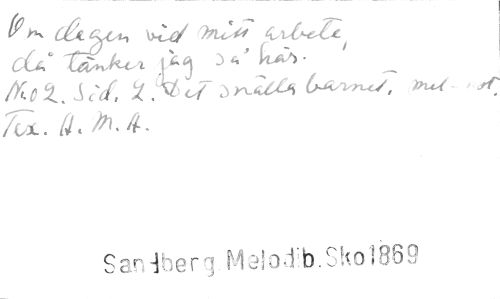 Om dagen vid mitt arbete,
då tänker jag så här.
No 2. Sid. 2. Det snälla barnet, mel. not.
Tex. A. M. A.
Sandberg. Melodib. Sko 1869